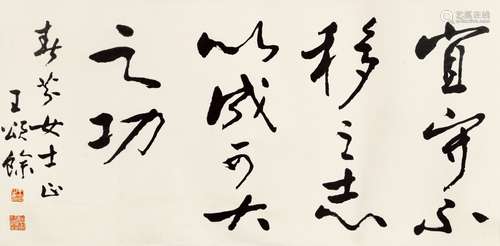 宜守不
移之志
以成可大
之功
春芬女士正
王颂馀